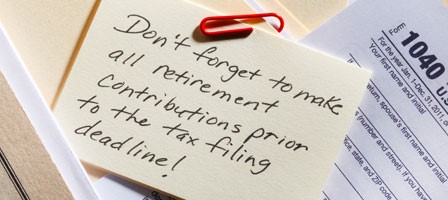 Don't forget to make
all retirement
contributions prior
to the tax filing
deadline!
Form
1040
U.S
For the year Jan. 1-Dec. 31, 2011, or
Your first name and initial
return, spouse's first name and initial
(number and street). If you have